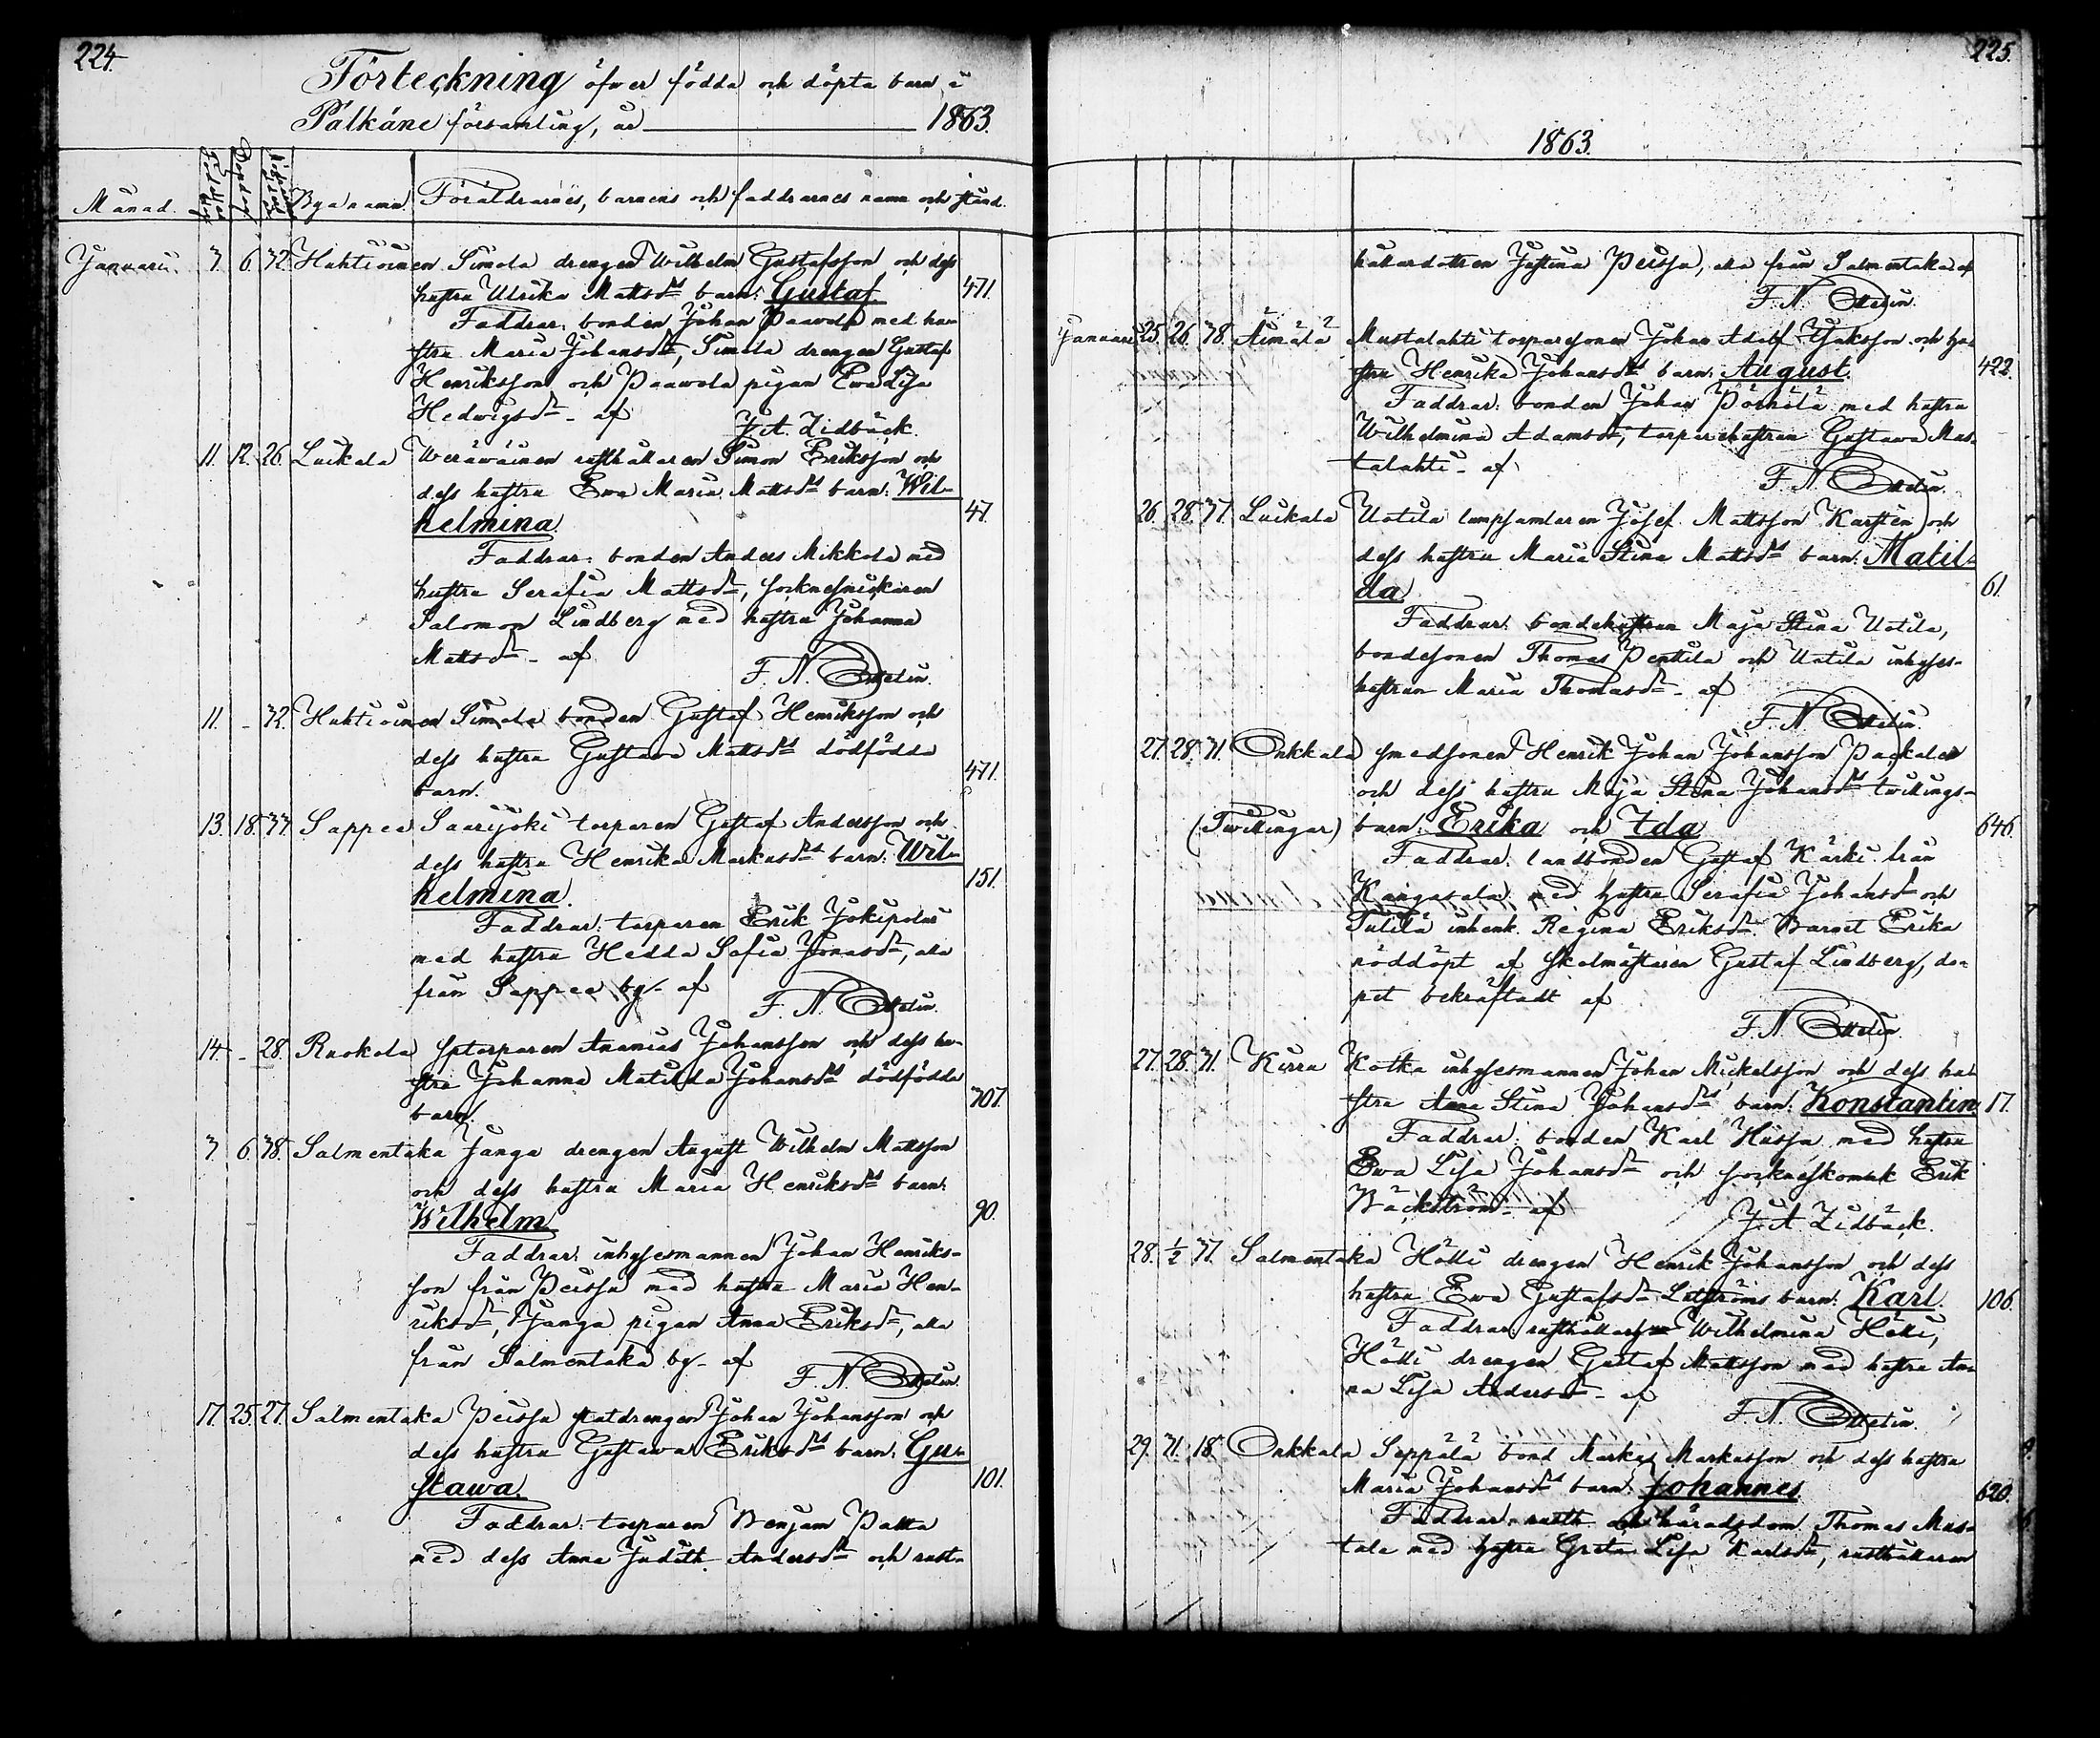 224.
Förteckning öfwer födda och döpta barn i
Pälkäne församling, år 1863.
Månad. Födelsedag Dopdag Byanamn. Föräldrarnes, barnens och faddrarnes namn och stånd.
Januarii. 3. 6. 32. Huhtioinen Simola drengen Wilhelm Gustafsson och dess
hustru Ulrika Mattsdrs barn: Gustaf. 471.
Faddrar: bonden Johan Paawola med hu-
stru Maria Johansdr, Simola drengen Gustaf
Henriksson och Paawola pigan Ewa Lisa
Hedwigsdr - af J. A. Lidbäck.
11. 12. 26. Luikala Weräwäinen rusthållaren Simon Eriksson och
dess hustru Ewa Maria Mattsdrs barn: Wil-
helmina. 47.
Faddrar: bonden Anders Mikkola med
hustru Serafia Mattsdr, sockneskräddaren
Salomon Lindberg med hustru Johanna
Mattsdr - af F. N. Ottelin.
11. - 32. Huhtioinen Simola bonden Gustaf Henriksson och
dess hustru Gustawa Mattsdrs dödfödda
barn. 471.
13. 18. 37. Sappee Saarijoki torparen Gustaf Andersson och
dess hustru Henrika Markusdrs barn: Wil-
helmina. 151.
Faddrar: torparen Erik Jokipolwi
med hustru Hedda Sofia Jonasdr, alla
från Sappee by - af F. N. Ottelin.
14. - 28. Ruokola sptorparen Ananias Johansson och dess hu-
stru Johanna Matilda Johansdrs dödfödda
barn. 307.
3. 6. 38. Salmentaka Janga drengen August Wilhelm Mattsson
och dess hustru Maria Henriksdrs barn:
Wilhelm 90.
Faddrar: inhysesmannen Johan Henriks-
son från Peissa med hustru Maria Hen-
riksdr, Janga pigan Anna Eriksdr, alla
från Salmentaka by - af F. N. Ottelin.
17. 25. 27. Salmentaka Peissa statdrengen Johan Johansson och
dess hustru Gustawa Eriksdrs barn: Gu-
stawa. 101.
Faddrar: torparen Benjam Patta
med dess Anna Judith Andersdr och rust-
225.
1863.
hållardottren Justina Peissa, alla från Salmentaka af
F. N. Ottelin.
Januarii 25. 26. 38. Äimälä Mustalahti torparesonen Johan Adolf Isaksson och hu-
stru Henrika Johansdrs barn: August. 422.
Faddrar: bonden Johan Pörhölä med hustru
Wilhelmina Adamsdr, torparehustrun Gustawa Mus-
talahti - af F. N. Ottelin.
26. 28. 37. Luikala Uotila lumpsamlaren Josef Mattsson Karsten och
dess hustru Maria Stina Mattsdrs barn: Matil-
da. 61.
Faddrar: bondehustrun Maja Stina Uotila,
bondesonen Thomas Penttila och Uotila inhyses-
hustrun Maria Thomasdr - af
F. N. Ottelin.
27. 28. 31. Onkkala smedsonen Henrik Johan Johansson Packalen
och dess hustru Maja Stina Johansdrs twillings-
(Twillingar) barn: Erika och Ida 646.
Faddrar: landbonden Gustaf Kärki från
Kangasala med hustru Serafia Johansdr och
Tulilä inhenk. Regina Eriksdr. Barnet Erika
nöddöpt af skolmästaren Gustaf Lindberg, do-
pet bekräftadt af
F. N. Ottelin.
27. 28. 31. Kirra Kotka inhysesmannen Johan Mickelsson och dess hu-
stru Anna Stina Johansdrs barn: Konstantin 17.
Faddrar: bonden Karl Hiissa med hustru
Ewa Lisa Johansdr och sockneskomak Erik
Bäckström - af J. A. Lidbäck.
28. 1/2 37. Salmentaka Hölli drengen Henrik Johansson och dess
hustru Ewa Gustafsdr Latströms barn: Karl. 106.
Faddrar: Wilhelmina Hölli,
Hölli drengen Gustaf Mattsson med hustru An-
na Lisa Andersdr - af
F. N. Ottelin.
29. 31. 18. Onkkala Seppälä bond Markus Markusson och dess hustru
Maria Johansdrs barn: Johannes 620.
Faddrar: rusth. och häradsdom. Thomas Mus-
tala med hustru Greta Lisa Karlsdr, rusthållaren